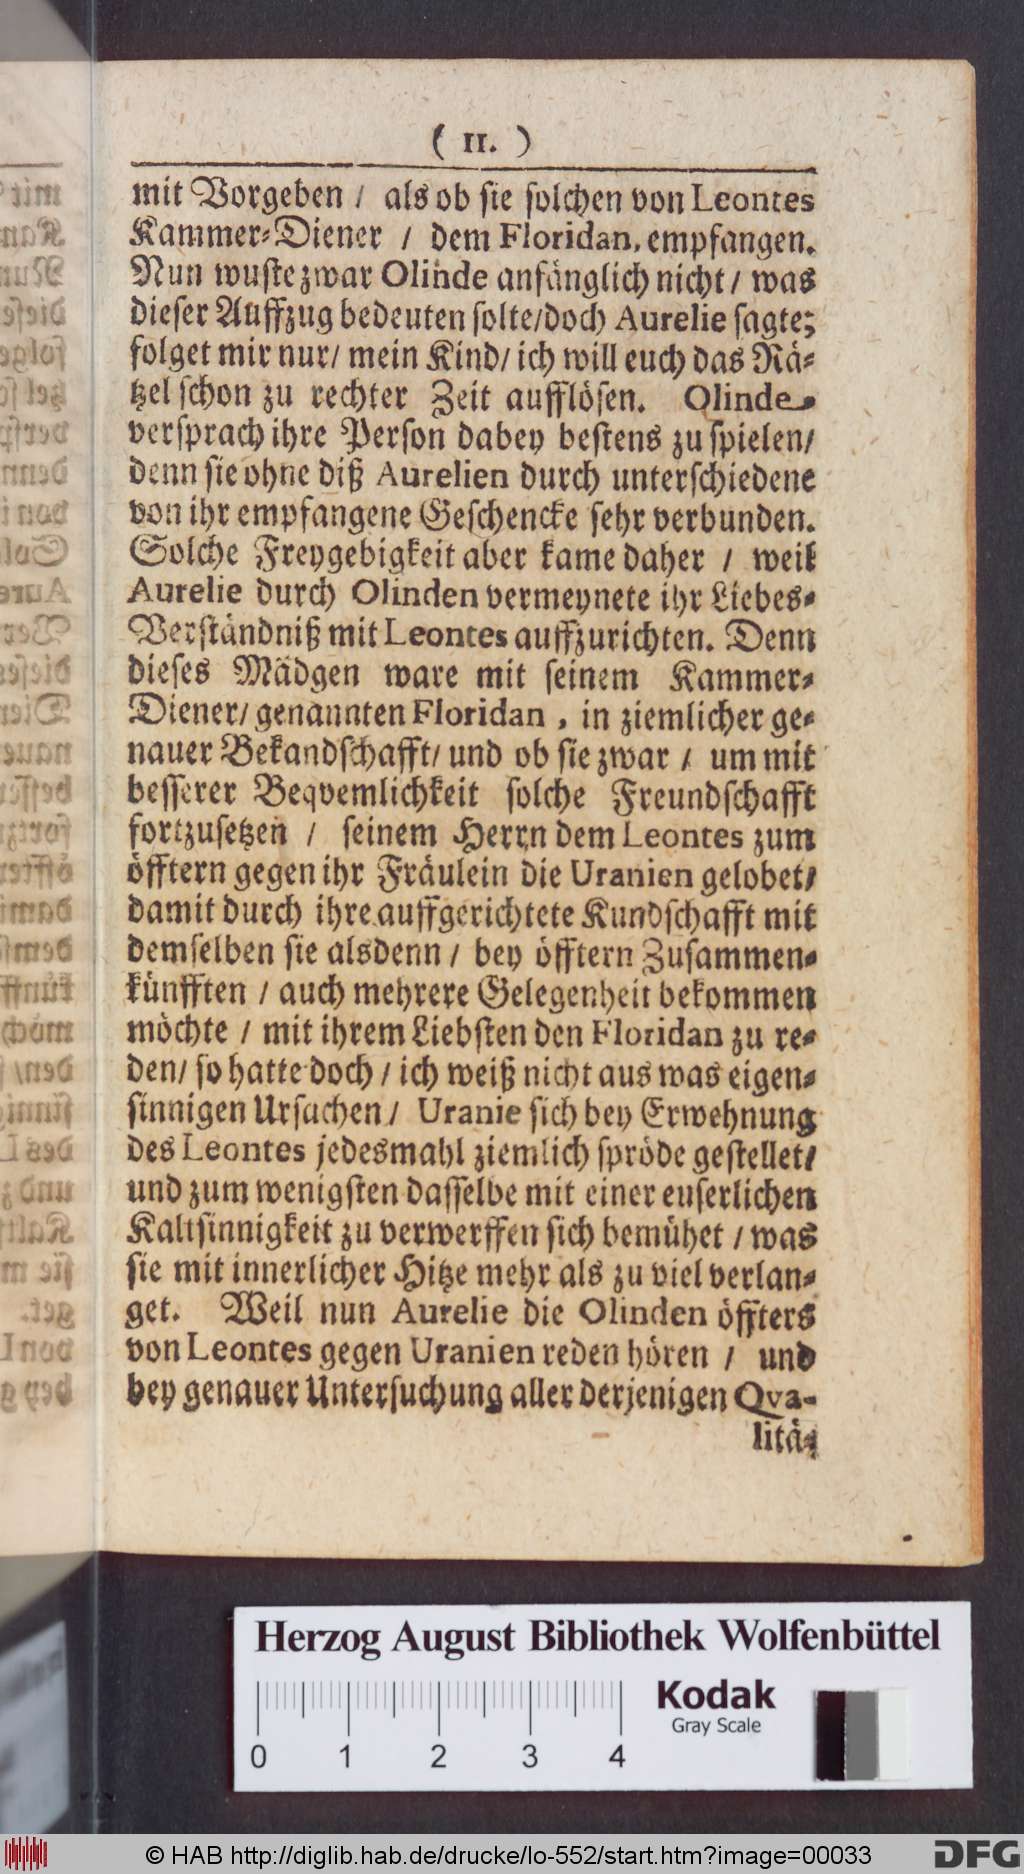 ( 11. )
mit Vorgeben / als ob sie solchen von Leontes
Kammer-Diener / dem Floridan, empfangen.
Nun wuste zwar Olinde anfänglich nicht / was
dieser Auffzug bedeuten solte/doch Aurelie sagte;
folget mir nur/ mein Kind/ ich will euch das Rä-
tzel schon zu rechter Zeit aufflösen. Olinde
versprach ihre Person dabey bestens zu spielen/
denn sie ohne diß Aurelien durch unterschiedene
von ihr empfangene Geschencke sehr verbunden.
Solche Freygebigkeit aber kame daher / weil
Aurelie durch Olinden vermeynete ihr Liebes-
Verständniß mit Leontes auffzurichten. Denn
dieses Mädgen ware mit seinem Kammer-
Diener/ genannten Floridan, in ziemlicher ge-
nauer Bekandschafft/ und ob sie zwar / um mit
besserer Beqvemlichkeit solche Freundschafft
fortzusetzen / seinem Herrn dem Leontes zum
öfftern gegen ihr Fräulein die Uranien gelobet/
damit durch ihre auffgerichtete Kundschafft mit
demselben sie alsdenn / bey öfftern Zusammen-
künfften / auch mehrere Gelegenheit bekommen
möchte / mit ihrem Liebsten den Floridan zu re-
den/ so hatte doch / ich weiß nicht aus was eigen-
sinnigen Ursachen / Uranie sich bey Erwehnung
des Leontes jedesmahl ziemlich spröde gestellet/
und zum wenigsten dasselbe mit einer euserlichen
Kaltsinnigkeit zu verwerffen sich bemühet / was
sie mit innerlicher Hitze mehr als zu viel verlan-
get. Weil nun Aurelie die Olinden öffters
von Leontes gegen Uranien reden hören / und
bey genauer Untersuchung aller derjenigen Qva-
litä-
Herzog August Bibliothek Wolfenbüttel
Kodak
Gray Scale
0 1 2 3 4
© HAB http://diglib.hab.de/drucke/lo-552/start.htm?image=00033
DFG